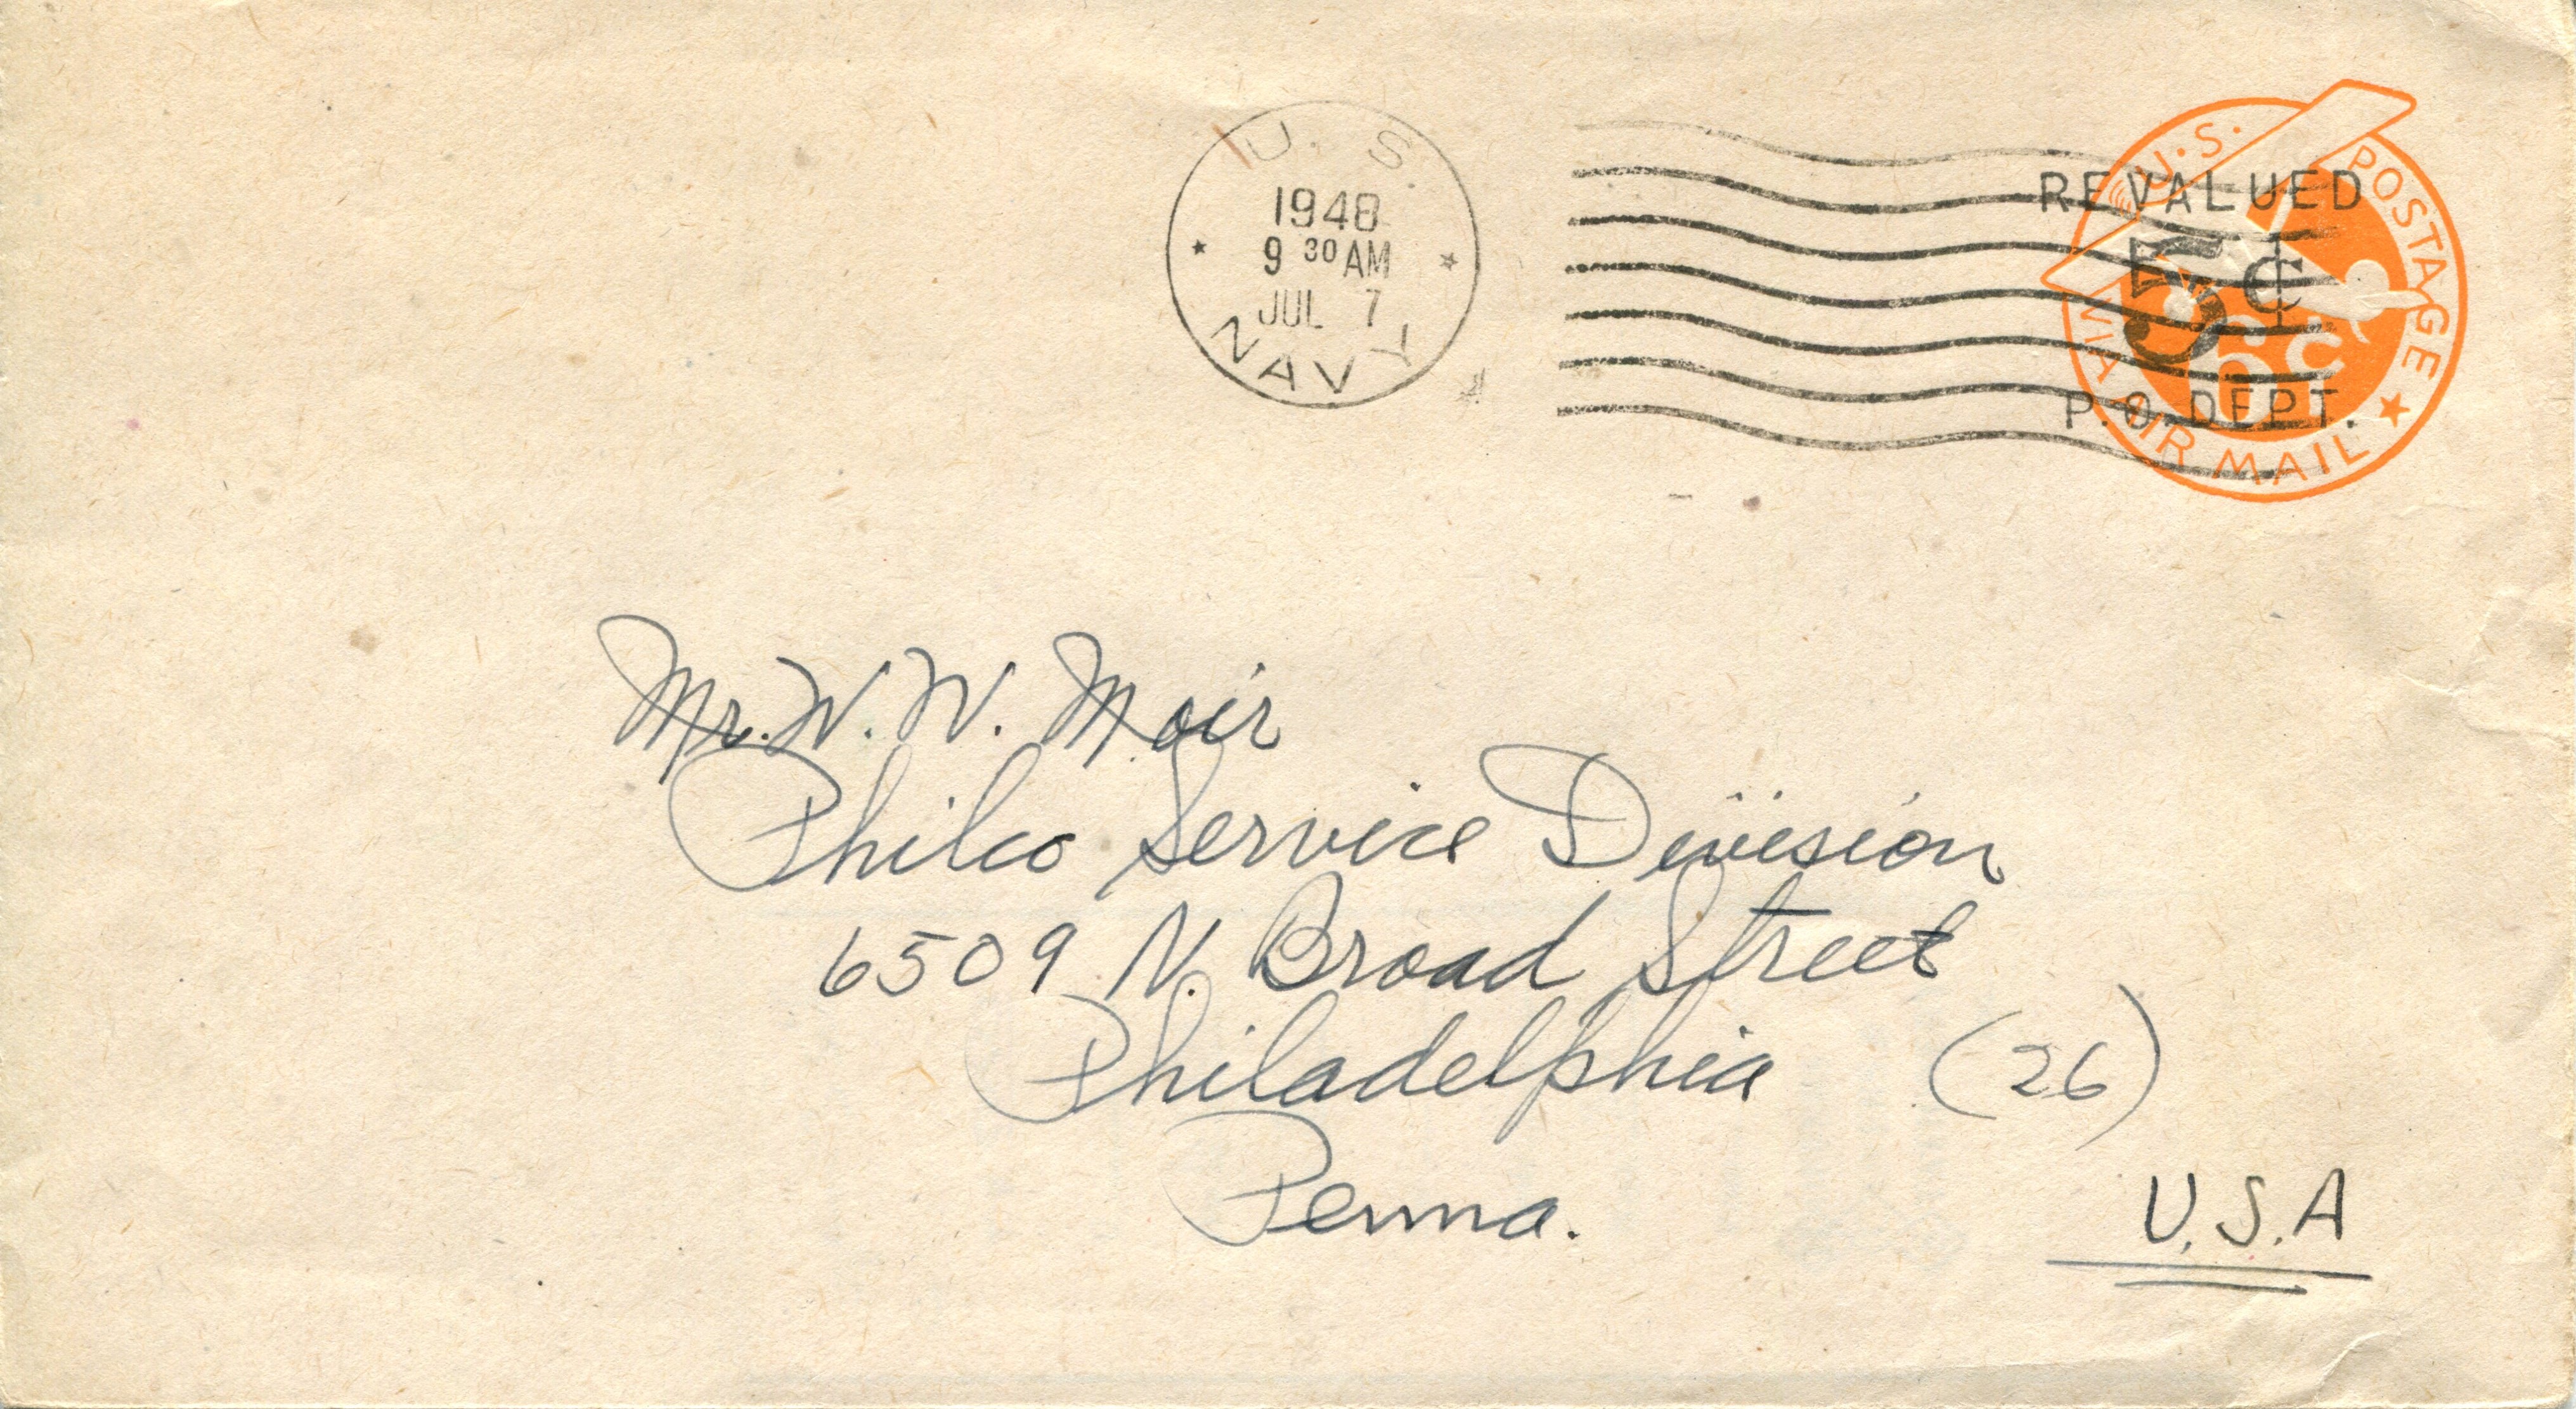 U. S.
1948
9 30 AM
JUL 7
NAVY
U.S. POSTAGE
REVALUED
5¢
6¢
P.O. DEPT.
VIA AIR MAIL
Mr. W. W. Moir
Philco Service Division
6509 N. Broad Street
Philadelphia (26)
Penna.
U.S.A